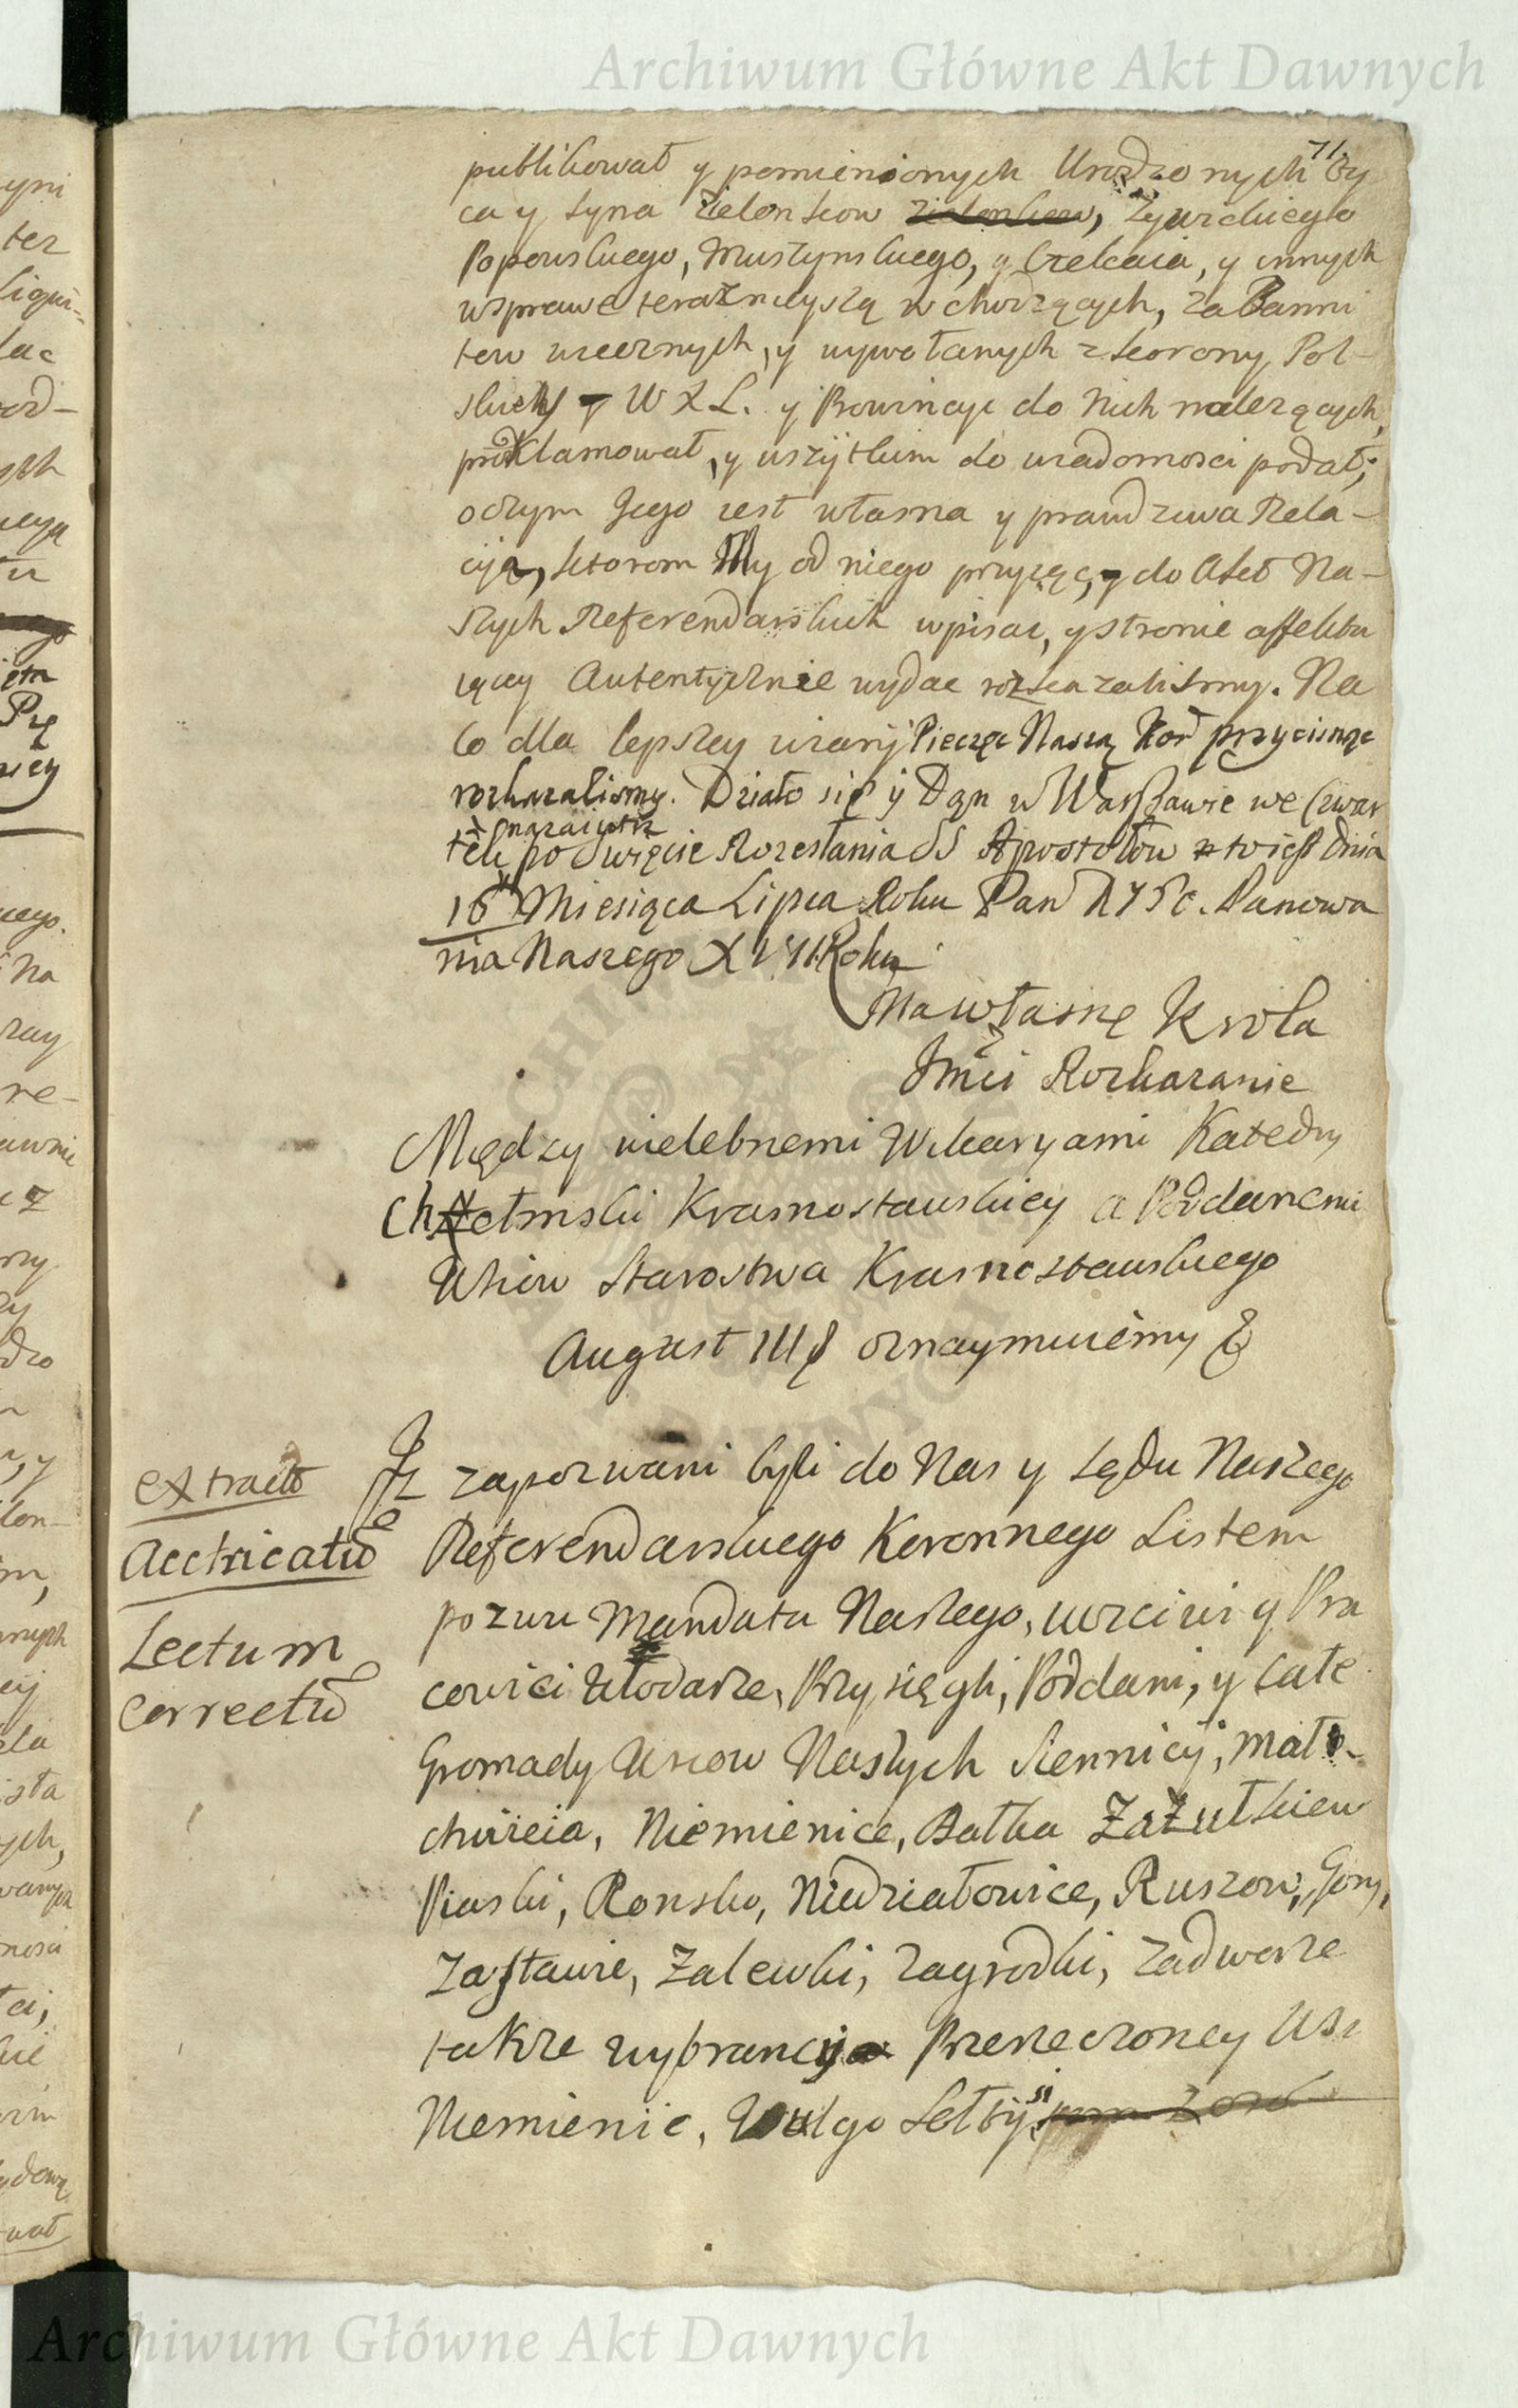 Archiwum Główne Akt Dawnych
71.
publikował y pomienionych Urodzonych Oy
ca y Syna Zielonkow Zielonkow, Zywickiego
Popowskiego, Muszynskiego, y Czekaia, y innych
w sprawę teraznieyszą wchodzących, za Banni
tow wiecznych, y wywołanych z Korony Pol-
skiey y W X L. y Prowincyi do Nich nalezących,
proklamował, y wszytkim do wiadomosci podał;
o czym Jego iest własna y prawdziwa Rela-
cija, ktorom My od niego przyiąc, y do Akt Na-
szych Referendarskich wpisac, y stronie affektu
iącey Autentycznie wydac roskazalismy. Na
Co dla lepszey wiary Pieczęc Naszą Kor przycisnąc
rozkazalismy. Działo się y Dan w Warszawie we Czwar
tek po Swięcie Rozesłania SS Apostołow to iest Dnia
nazaiutrz
16 Miesiąca Lipca Roku Pan 1750. Panowa
nia Naszego XVII Roku
Na własne Krola
Jmci Rozkazanie
Między wielebnemi Wikaryami Katedry
Chełmski Krasnostawskiey a Poddanemi
Wsiow Starostwa Krasnostawskiego
August III oznaymuiemy &
extractō
Acticatū
Lectum
Correctū
Jz zapozwani byli do Nas y Sędu Naszego
Referendarskiego Koronnego Listem
pozwu Mandatu Naszego, uczciwi y Pra
cowici Włodarze, Przysięgli, Poddani, y całe
Gromady Wsiow Naszych Siennicy, Mało-
chwieia, Niemienice, Białka Zazułkiew
Piaski, Ronsko, Niedziałowice, Ruszow, Gory,
Zastawie, Zalewki, Zagrodki, Zadworze
takze wybrancy Przerzeczoney Wsi
Niemienic, Vulgo Sołtysi
Archiwum Główne Akt Dawnych